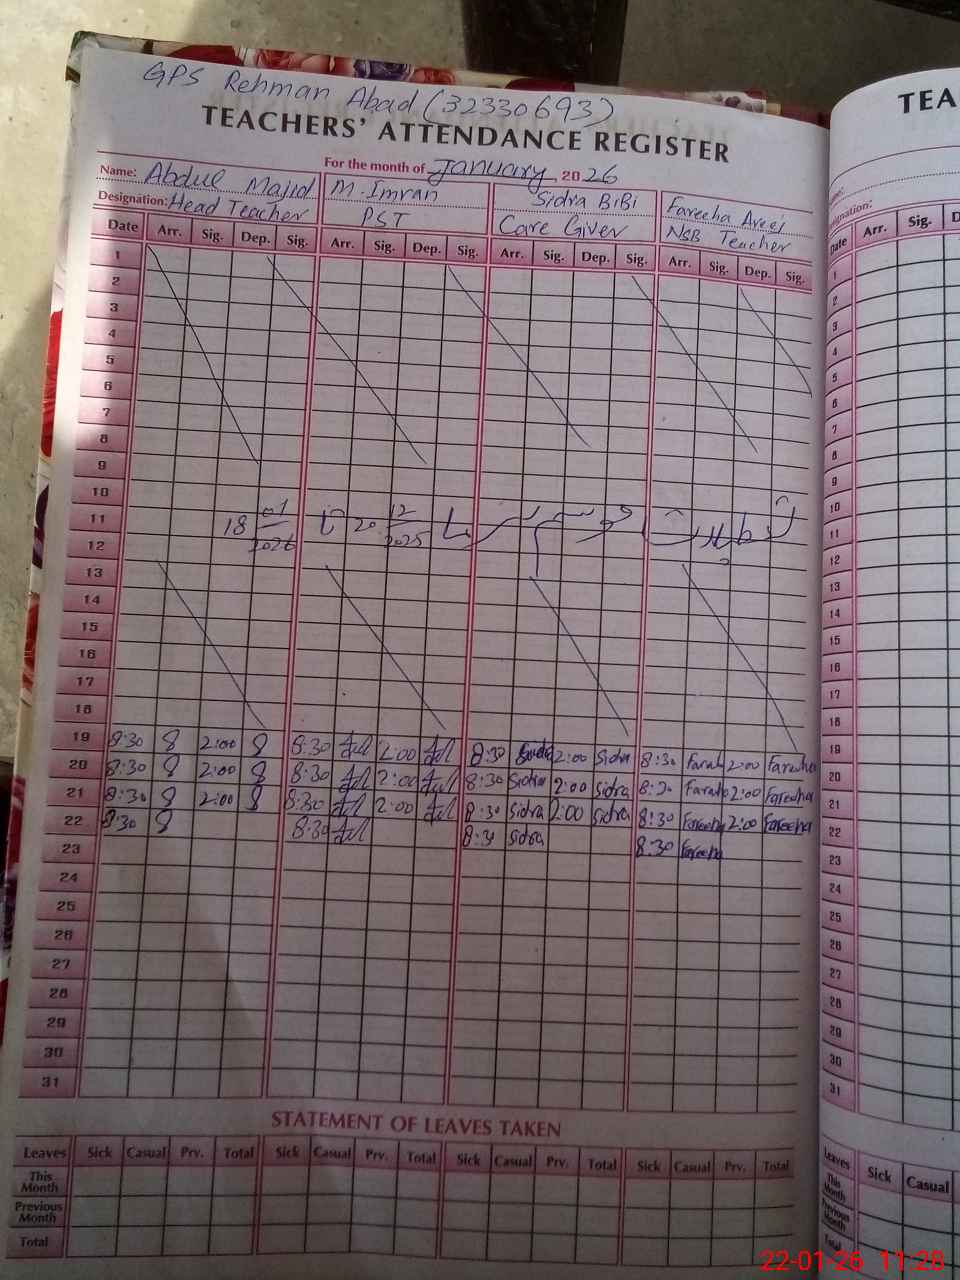 GPS Rehman Abad (32330693)
TEACHERS' ATTENDANCE REGISTER
For the month of January 2026
Name: Abdul Majid M. Imran Sidra BiBi Fareeha
Designation: Head Teacher PST Care Giver NSB Teacher
Date Arr. Sig. Dep. Sig. Arr. Sig. Dep. Sig. Arr. Sig. Dep. Sig. Arr. Sig. Dep. Sig.
1
2
3
4
5
6
7
8
9
10
11 18 01 2026 20 12 2025
12
13
14
15
16
17
18
19 8:30 2:00 8:30 2:00 8:30 Sidra 2:00 Sidra 8:30 Farah 2:00 Fareeha
20 8:30 2:00 8:30 2:00 8:30 Sidra 2:00 Sidra 8:30 2:00 Fareeha
21 8:30 2:00 8:30 2:00 8:30 Sidra 2:00 Sidra 8:30 Fareeha 2:00 Fareeha
22 8:30 8:30 8:30 Sidra 8:30 Fareeha
23
24
25
26
27
28
29
30
31
STATEMENT OF LEAVES TAKEN
Leaves Sick Casual Prv. Total Sick Casual Prv. Total Sick Casual Prv. Total Sick Casual Prv. Total
This Month
Previous Month
Total
TEA
Date Arr. Sig. D
1
2
3
4
5
6
7
8
9
10
11
12
13
14
15
16
17
18
19
20
21
22
23
24
25
26
27
28
29
30
31
Leaves Sick Casual
This Month
Previous Month
Total
22-01-26 11:28